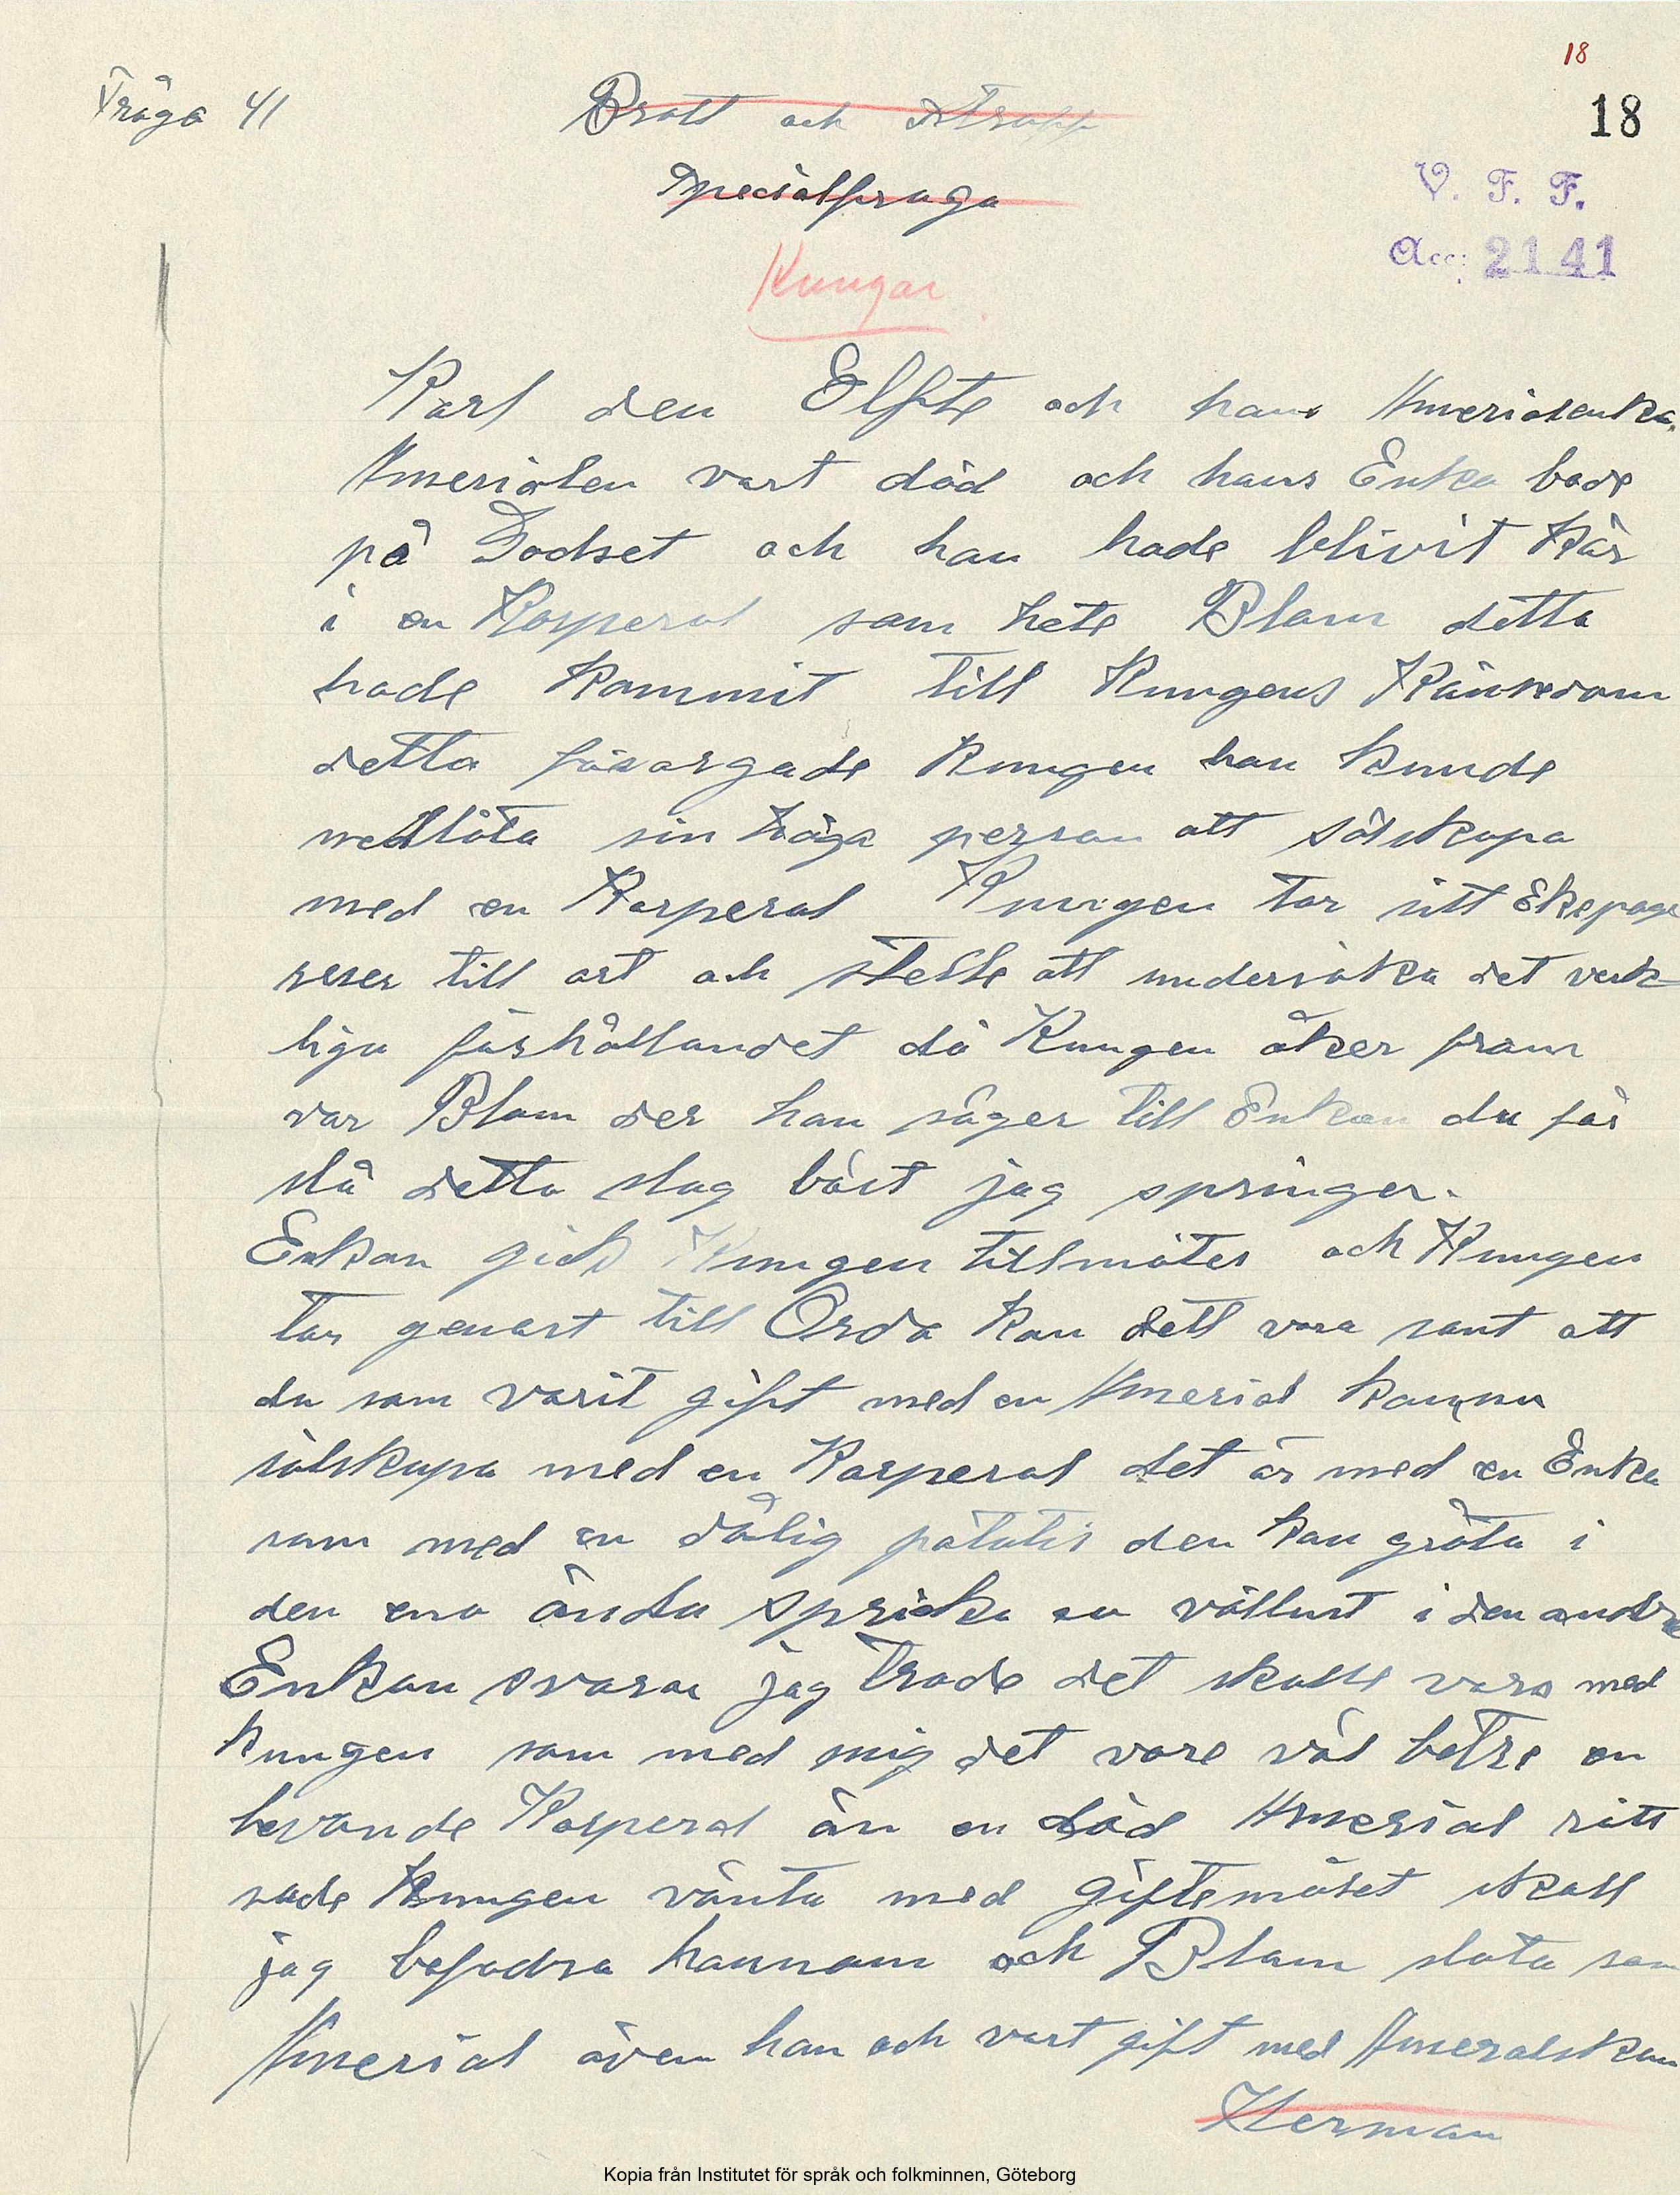 18
Fråga 41 Brott och Straff 18
Specialfråga
V. F. F.
Acc: 2141
Kungar
Karl den Elfte och hans Ameralenka.
Ameralen vart död och hans Enka bode
på Godset och hon hade blivit kär
i en Korperal som hete Blom detta
hade kommit till Kungens Kännedom
detta förargade Kungen hon kunde
nedlåta sin höga person att sälskapa
med en Korperal Kungen tar sitt Ekepage
reser till ort och stelle att undersöka det verk-
liga förhållandet då Kungen åker fram
var Blom der han säger till Enkan du får
slå detta slag bäst jag springer.
Enkan gick Kungen tillmötes och Kungen
tar genast till Orda kan dett vara sant att
du som varit gift med en Ameral kan nu
sälskapa med en Korperal det är med en Enka
som med en dålig potatis den kan gråta i
den ena ändan spricka av vällust i den andre
Enkan svarar jag trode det skulle vara med
kungen som med mig det vore väl betre en
levande Korperal än en död Ameral rätt
sade Kungen vänta med giftemålet skall
jag befodra honnom och Blom sluta som
Ameral även han och vart gift med Ameralskan
Herman
Kopia från Institutet för språk och folkminnen, Göteborg